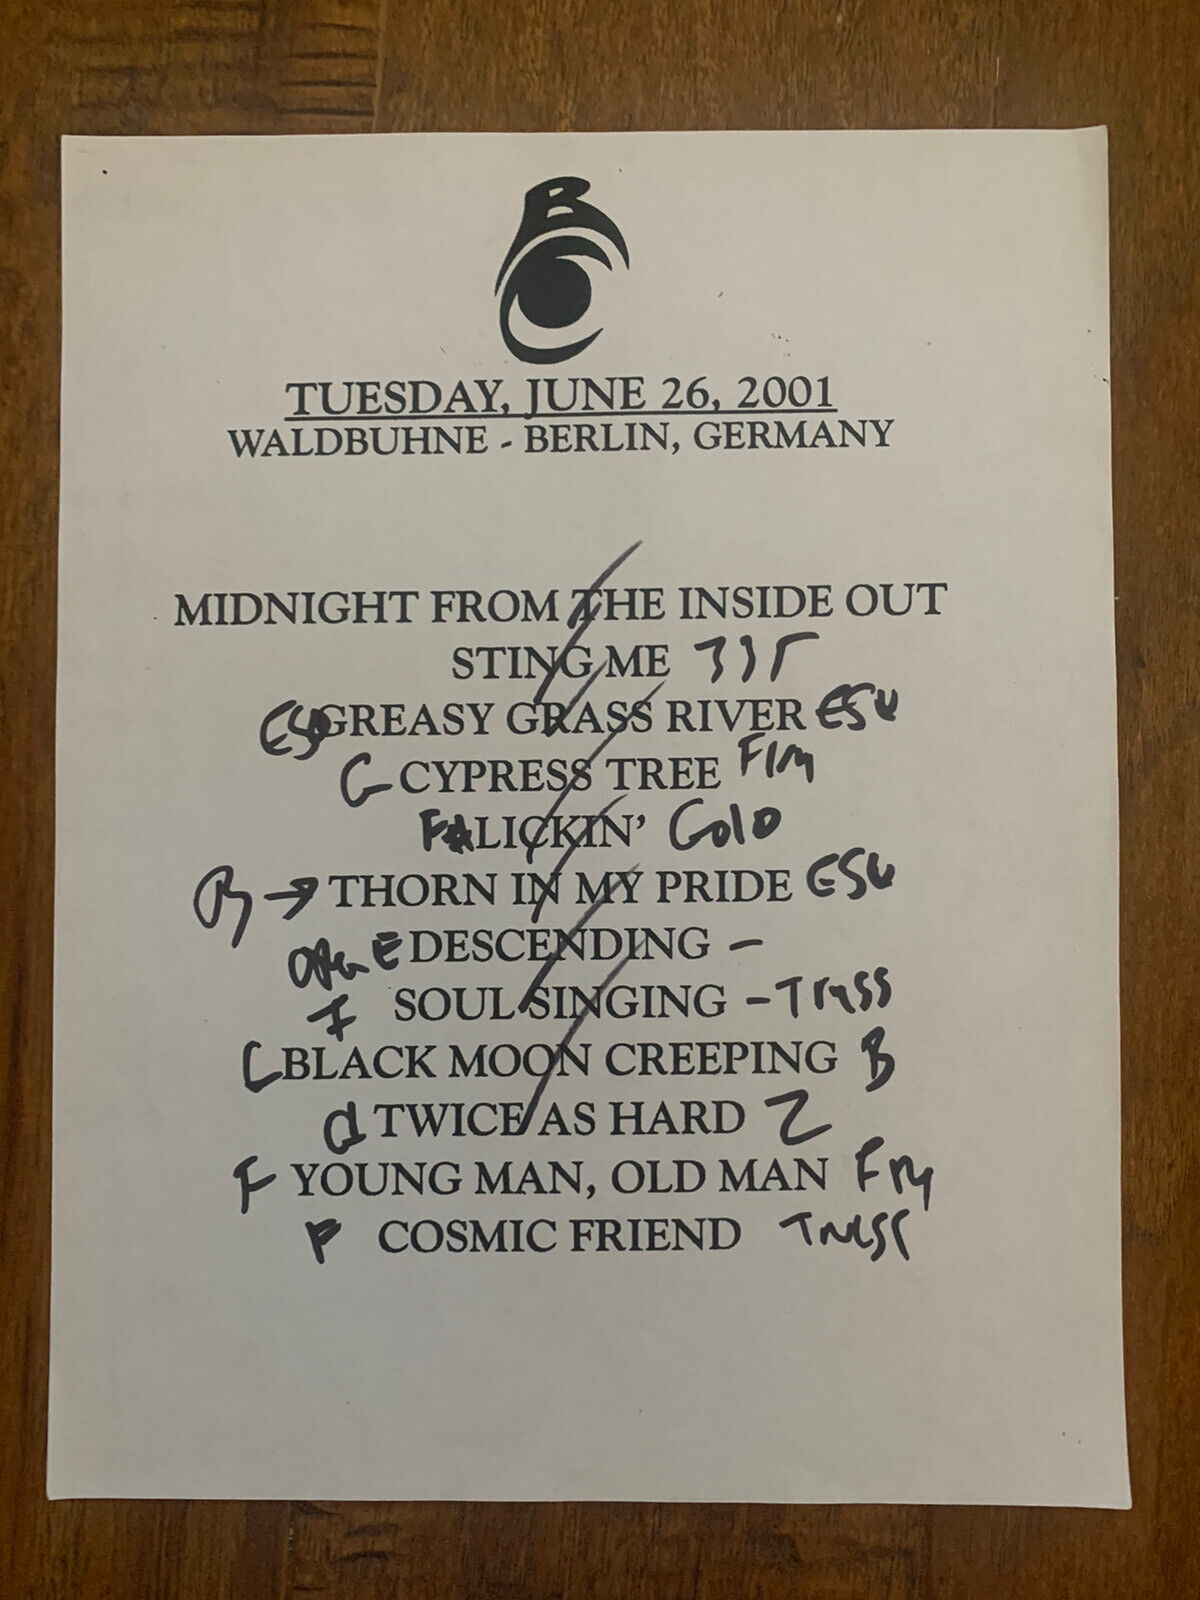 BC
TUESDAY, JUNE 26, 2001
WALDBUHNE - BERLIN, GERMANY
MIDNIGHT FROM THE INSIDE OUT
STING ME 335
GREASY GRASS RIVER ESQ
G CYPRESS TREE
LICKIN' Gold
B → THORN IN MY PRIDE ESQ
E DESCENDING -
F SOUL SINGING - Truss
C BLACK MOON CREEPING B
d TWICE AS HARD Z
F YOUNG MAN, OLD MAN
F COSMIC FRIEND Truss